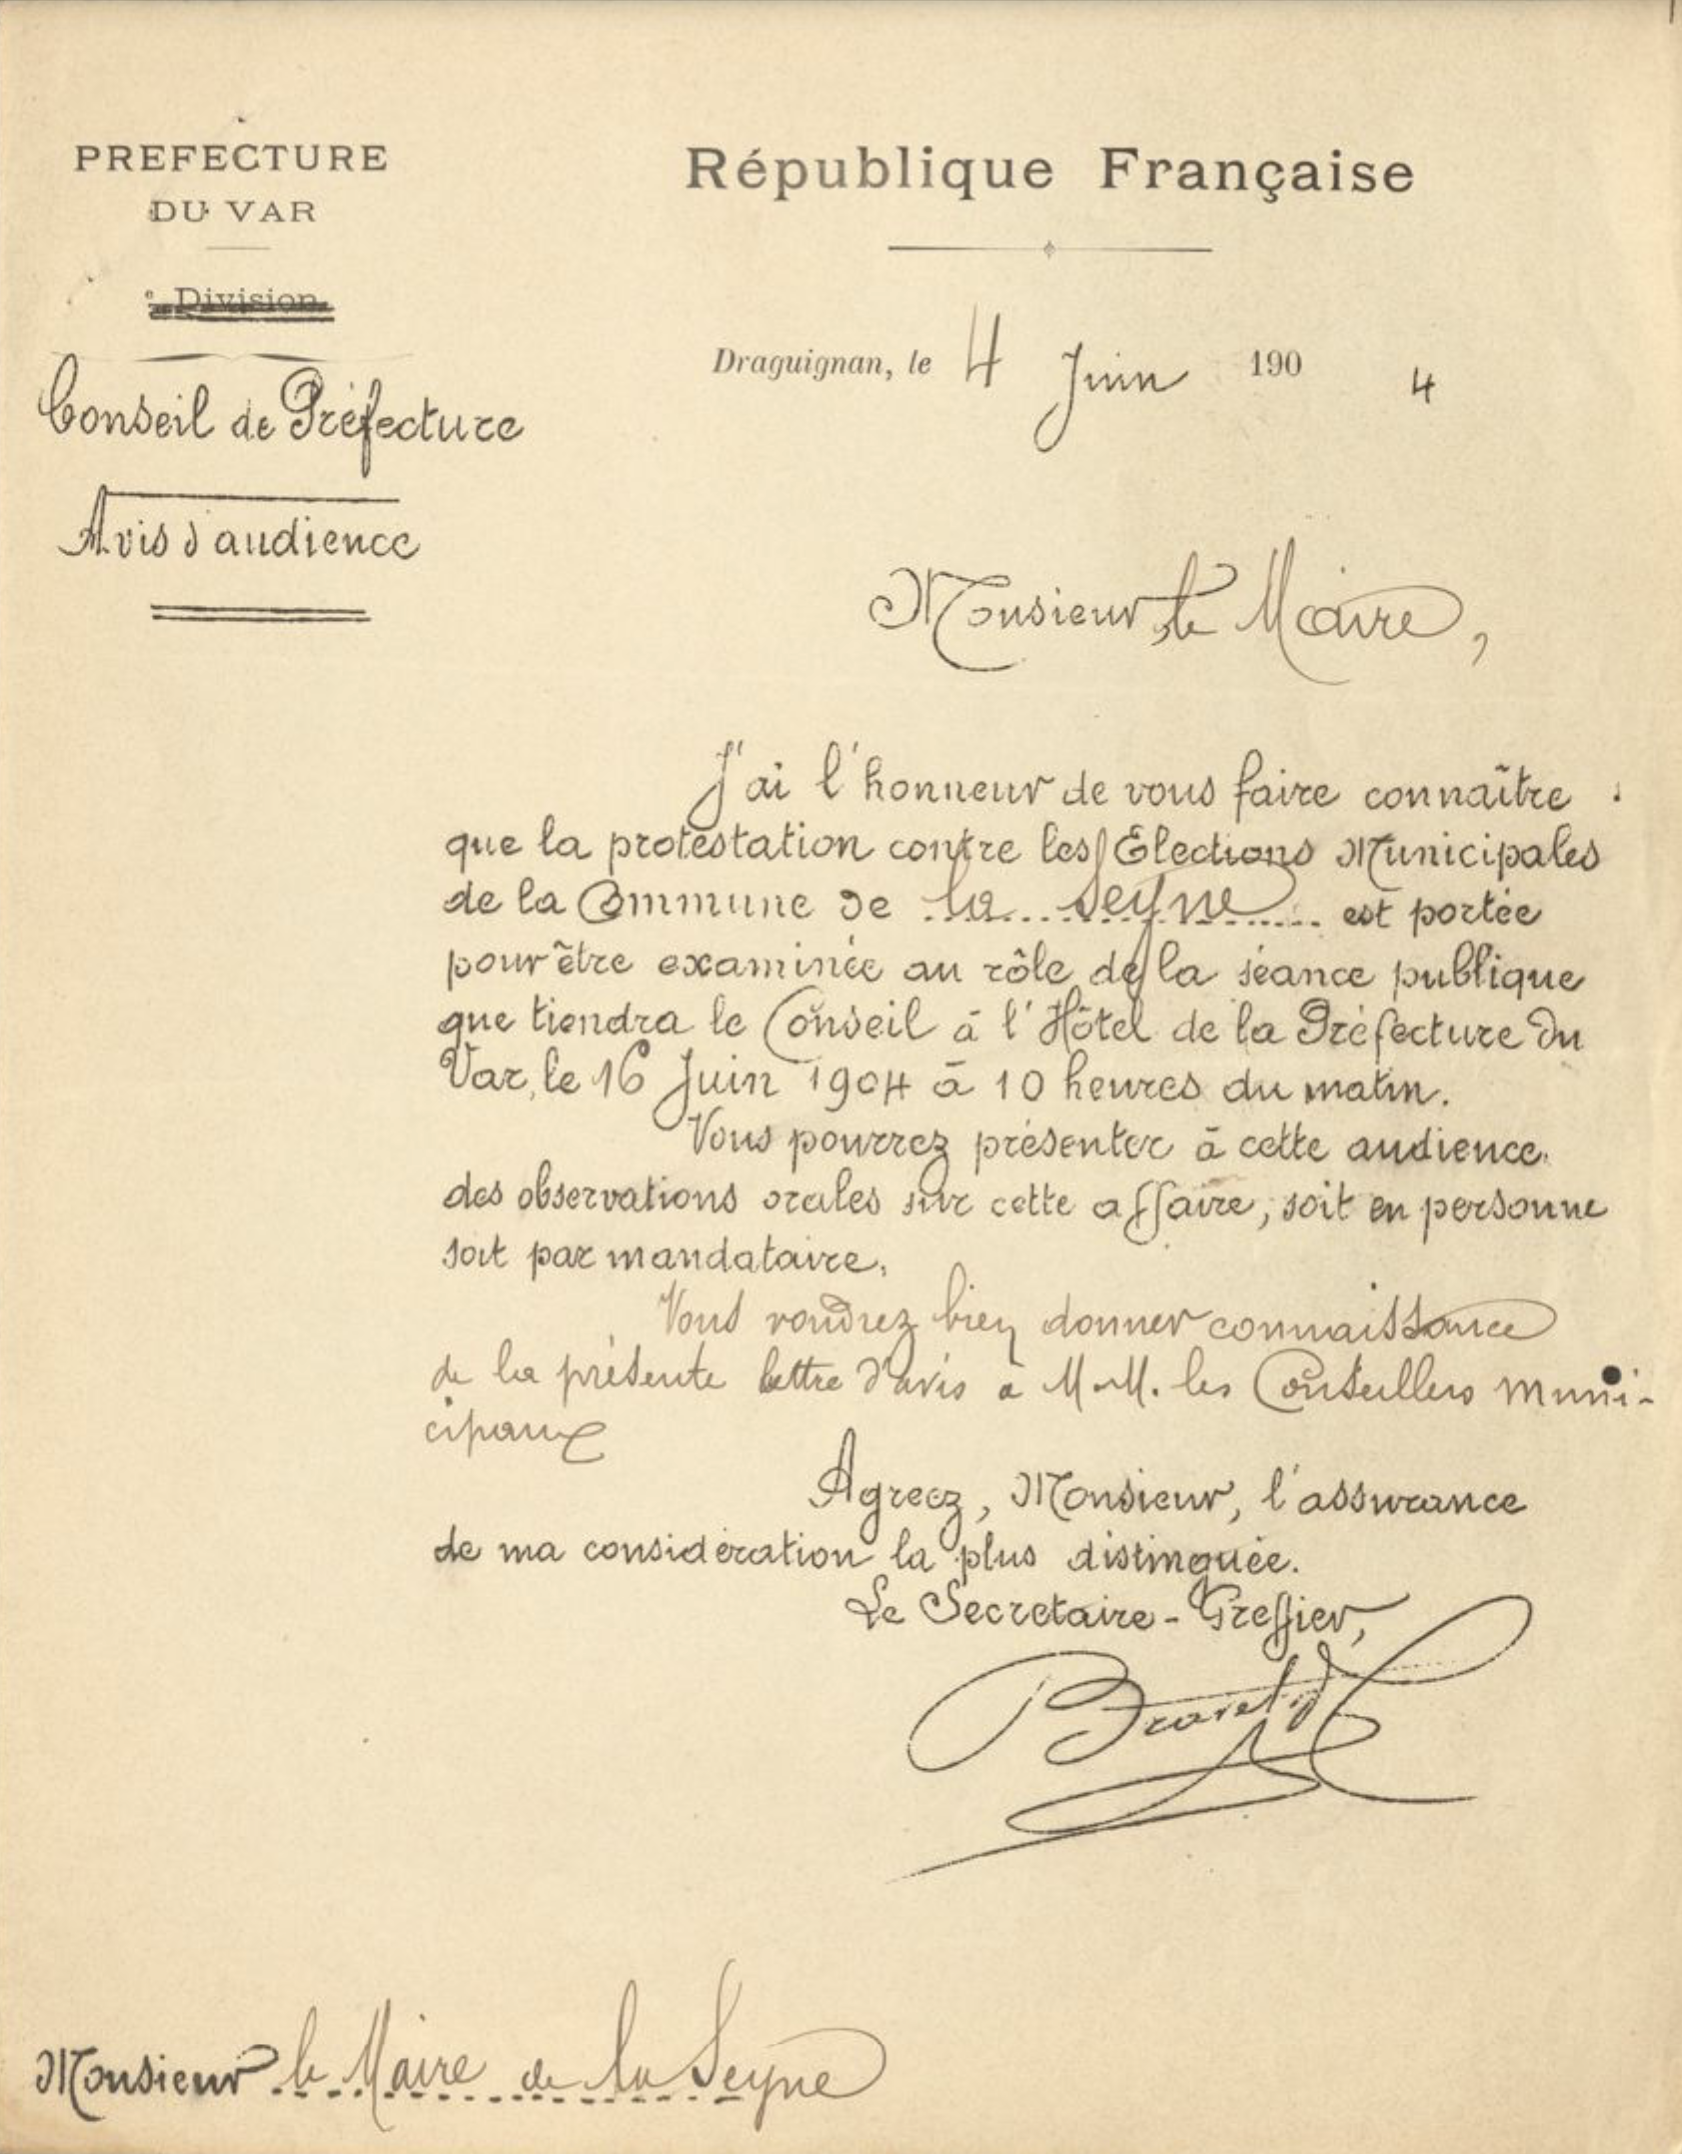 PREFECTURE
DU VAR
République Française
e Division
Draguignan, le 4 Juin 1904
Conseil de Préfecture
Avis d'audience
Monsieur le Maire,
J'ai l'honneur de vous faire connaître
que la protestation contre les Elections Municipales
de la Commune de la Seyne est portée
pour être examinée au rôle de la séance publique
que tiendra le Conseil à l'Hôtel de la Préfecture du
Var, le 16 Juin 1904 à 10 heures du matin.
Vous pourrez présenter à cette audience
des observations orales sur cette affaire, soit en personne
soit par mandataire.
Vous voudrez bien donner connaissance
de la présente lettre d'avis à M.M. les Conseillers muni-
cipaux
Agreez, Monsieur, l'assurance
de ma considération la plus distinguée.
Le Secretaire-Greffier,
Monsieur le Maire de la Seyne